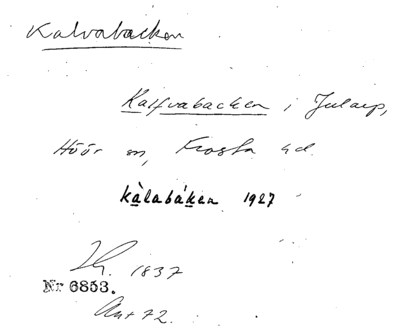 Kalvabacken
Kalfvabacken i Jularp,
Höör sn, Frosta hd.
kàlabáken 1927
1837
Nr 6853.
Ant 72.